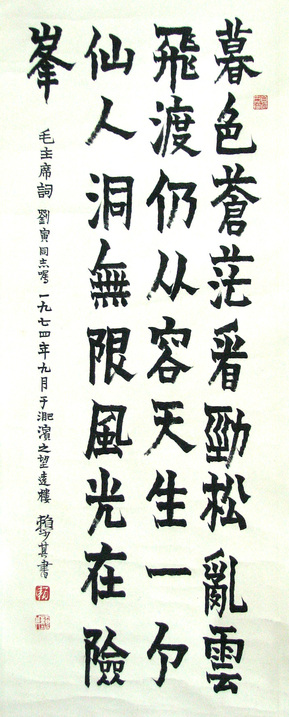 暮色蒼茫看勁松亂雲
飛渡仍从容天生一个
仙人洞無限風光在險
峯
毛主席詞 劉寅同志囑 一九七四年九月于淝濱之望遠樓 賴少其書